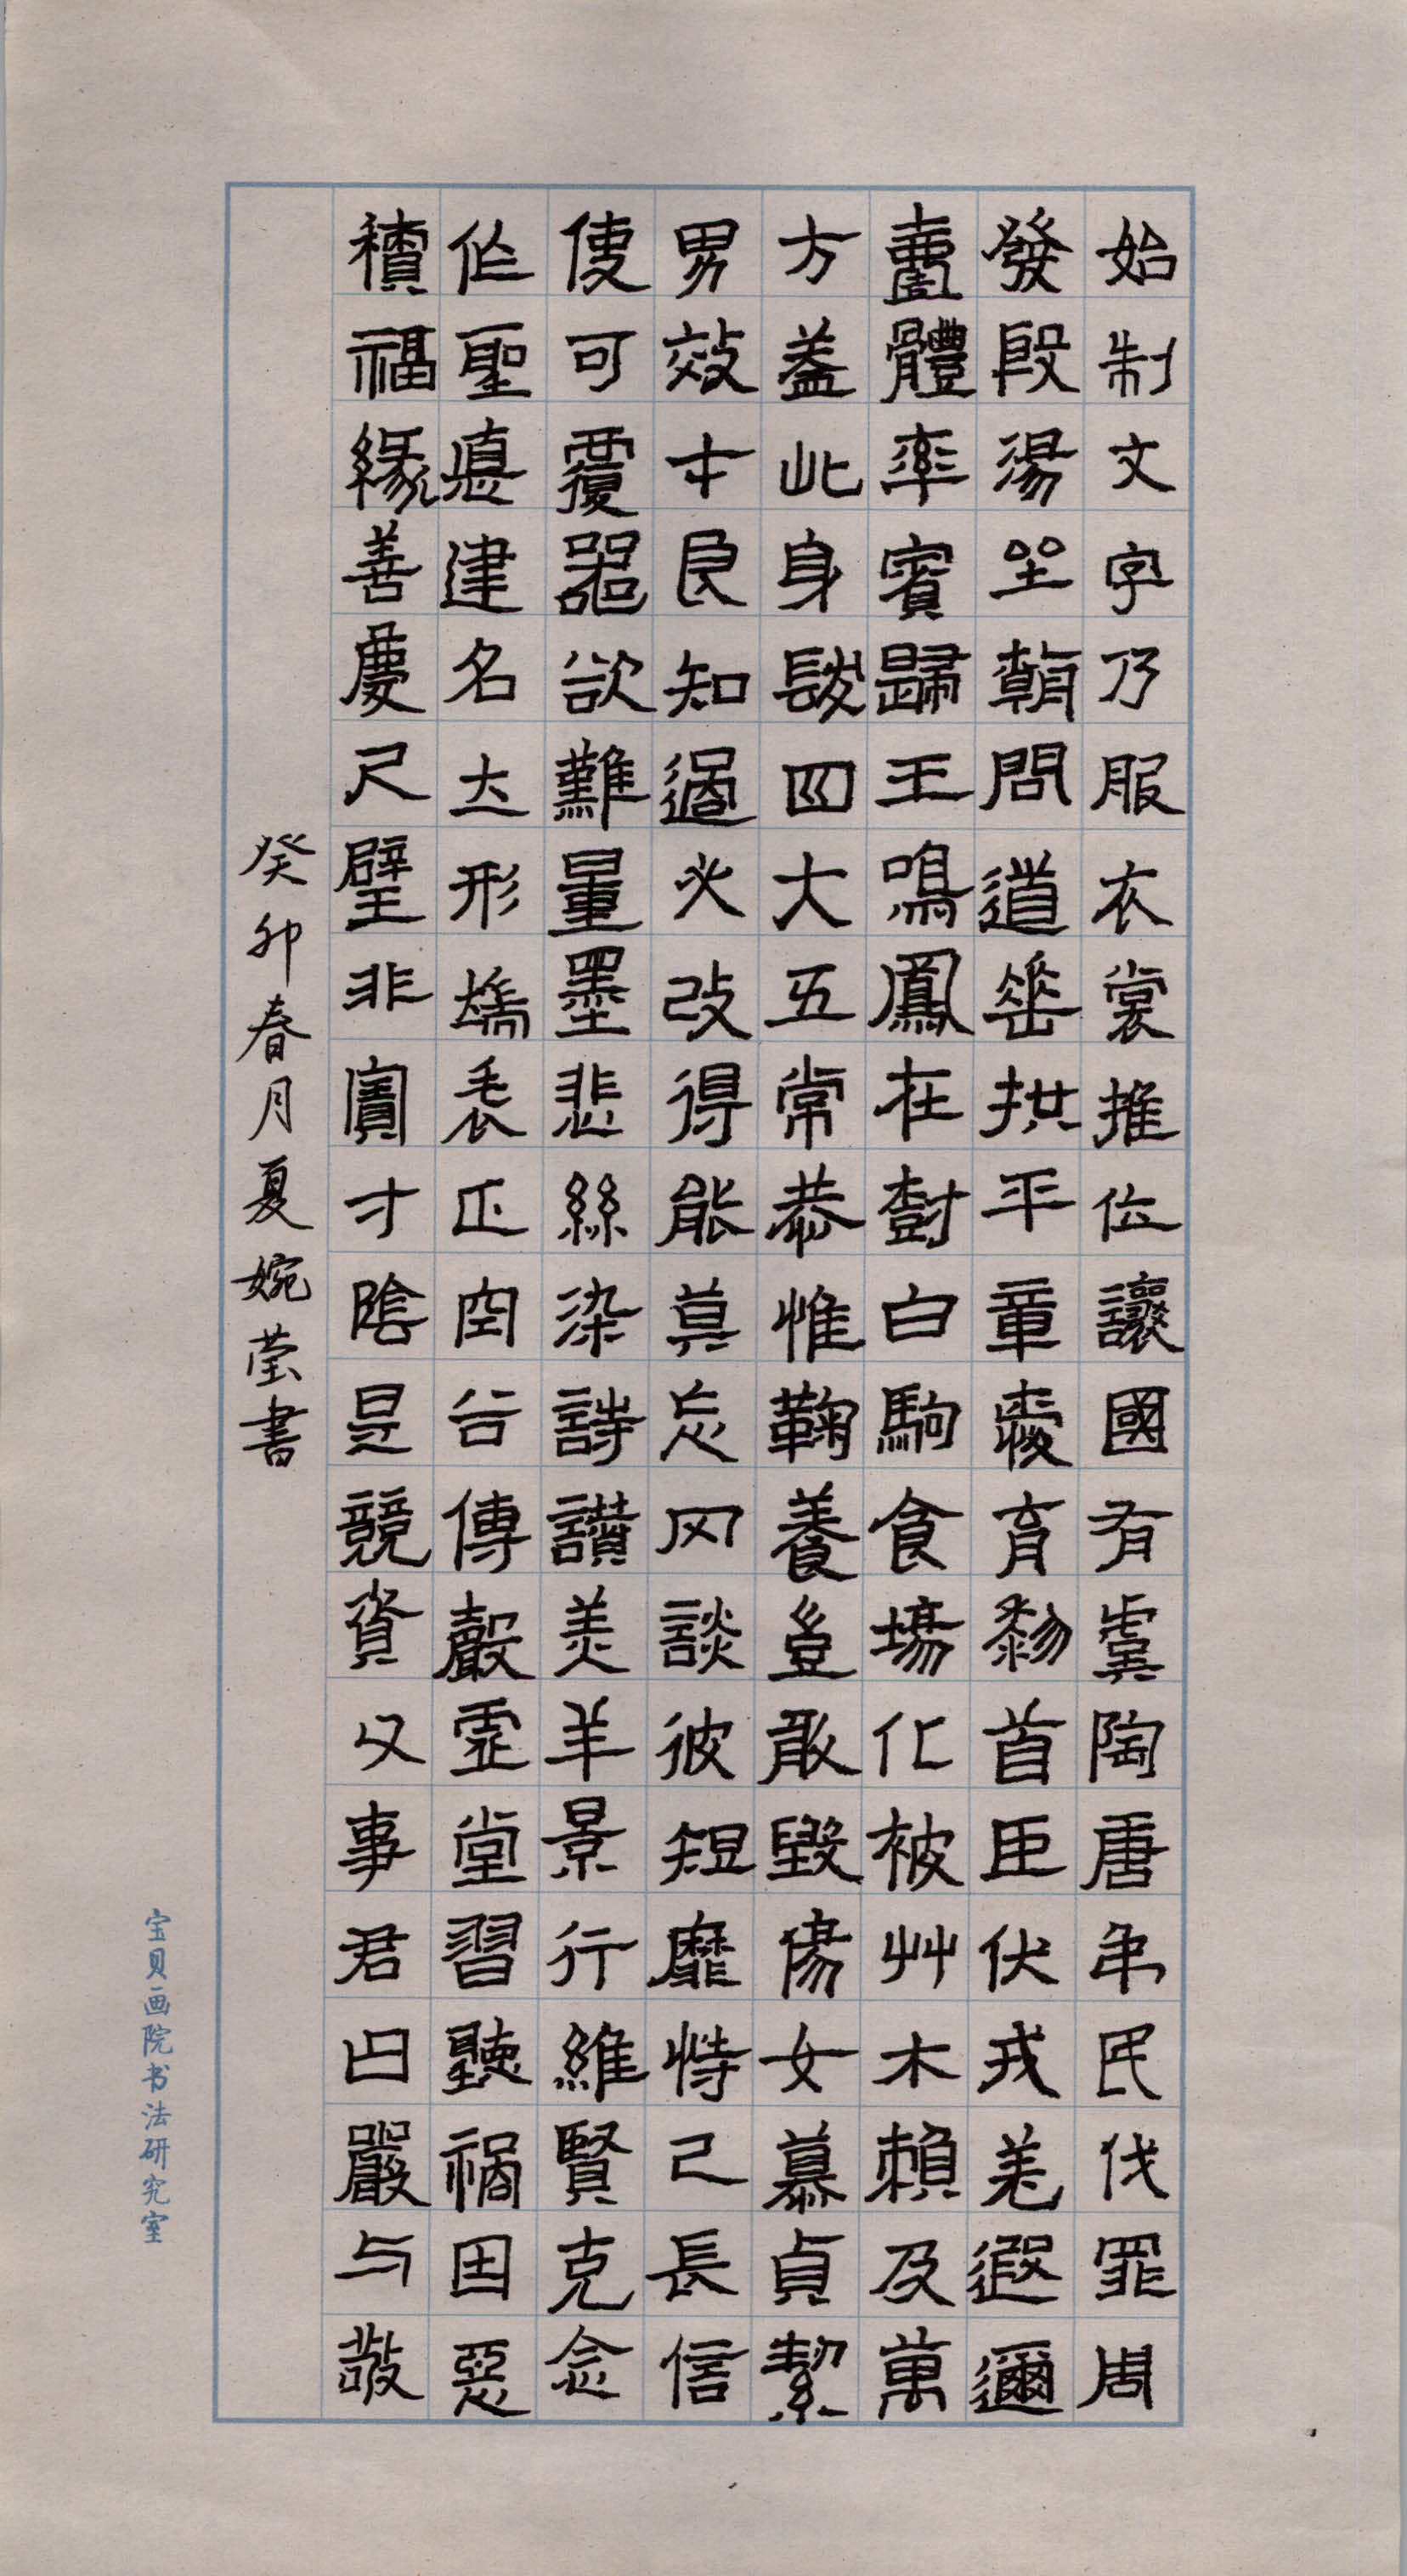 始制文字乃服衣裳推位讓國有虞陶唐弔民伐罪周
發殷湯坐朝問道垂拱平章愛育黎首臣伏戎羌遐邇
壹體率賓歸王鳴鳳在樹白駒食場化被草木賴及萬
方蓋此身髮四大五常恭惟鞠養豈敢毀傷女慕貞絜
男效才良知過必改得能莫忘罔談彼短靡恃己長信
使可覆器欲難量墨悲絲染詩讚羔羊景行維賢克念
作聖德建名立形端表正空谷傳聲虛堂習聽禍因惡
積福緣善慶尺璧非寶寸陰是競資父事君曰嚴与敬
癸卯春月夏婉莹書
宝贝画院书法研究室